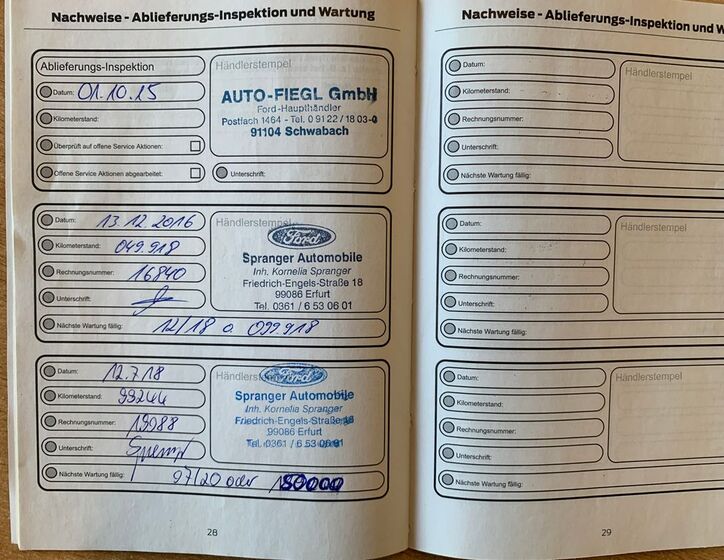 Nachweise - Ablieferungs-Inspektion und Wartung
Ablieferungs-Inspektion
Datum: 01.10.15
Kilometerstand:
Überprüft auf offene Service Aktionen:
Offene Service Aktionen abgearbeitet:
Händlerstempel
AUTO-FIEGL GmbH
Ford-Haupthändler
Postfach 1464 - Tel. 0 91 22 / 18 03-0
91104 Schwabach
Unterschrift:
Datum: 13.12.2016
Kilometerstand: 049.918
Rechnungsnummer: 16840
Unterschrift:
Händlerstempel
Ford
Spranger Automobile
Inh. Kornelia Spranger
Friedrich-Engels-Straße 18
99086 Erfurt
Tel. 0361 / 6 53 06 01
Nächste Wartung fällig: 12/18 o 099.918
Datum: 12.7.18
Kilometerstand: 99244
Rechnungsnummer: 19088
Unterschrift:
Händlerstempel
Ford
Spranger Automobile
Inh. Kornelia Spranger
Friedrich-Engels-Straße 18
99086 Erfurt
Tel. 0361 / 6 53 06 01
Nächste Wartung fällig: 07/20 oder
28
Nachweise - Ablieferungs-Inspektion und W
Datum:
Kilometerstand:
Rechnungsnummer:
Unterschrift:
Nächste Wartung fällig:
Händlerstempel
Datum:
Kilometerstand:
Rechnungsnummer:
Unterschrift:
Nächste Wartung fällig:
Händlerstempel
Datum:
Kilometerstand:
Rechnungsnummer:
Unterschrift:
Nächste Wartung fällig:
Händlerstempel
29